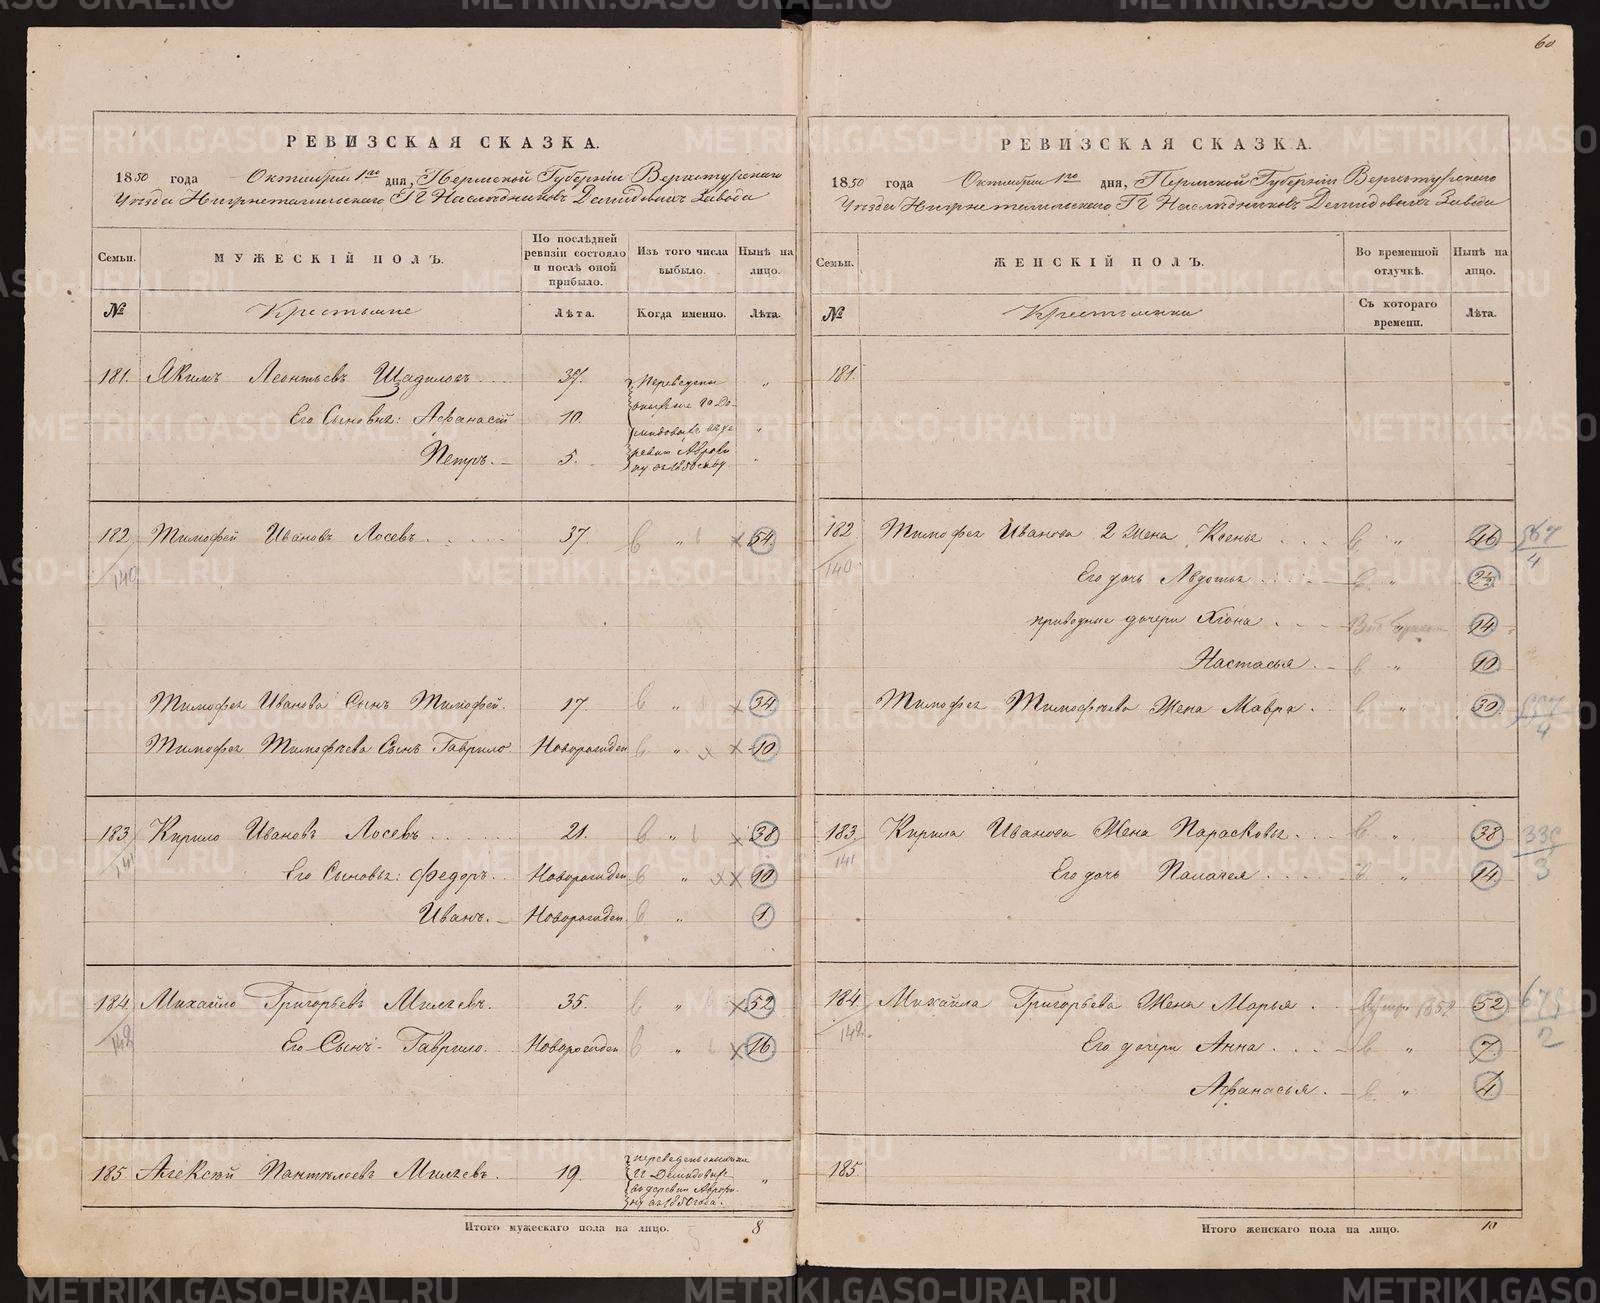 60
РЕВИЗСКАЯ СКАЗКА.
1850 года Октября 1го дня, Пермской Губернiи Верхотурскаго
Уѣзда Нижнетагильскаго Гг Наслѣдниковъ Демидовыхъ Завода
Семьи.
МУЖЕСКIЙ ПОЛЪ.
По послѣдней ревизiи состояло и послѣ оной прибыло.
Изъ того числа выбыло.
Нынѣ на лицо.
№
Крестьяне
Лѣта.
Когда именно.
Лѣта.
181. Якимъ Леонтьевъ Щадиловъ 37. Переведены
Его Сыновья: Афанасiй 10.
Петръ. 5.
въ 1850 году.
182 Тимофей Ивановъ Лосевъ 37. 54
140
Тимофея Иванова Сынъ Тимофей. 17 34
Тимофея Тимофѣева Сынъ Гаврило Новорожден 10
183 Кирило Ивановъ Лосевъ 21. 38
141
Его Сыновья: Федоръ. Новорожден 10
Иванъ. Новорожден. 1
184 Михайло Григорьевъ Мигачевъ 35. 52
142
Его Сынъ Гаврило. Новорожден 16
185 Алексѣй Пантѣлеевъ Мигачевъ. 19.
Гг Демидовыхъ
въ 1850 года.
Итого мужескаго пола на лицо. 8
РЕВИЗСКАЯ СКАЗКА.
1850 года Октября 1го дня, Пермской Губернiи Верхотурскаго
Уѣзда Нижнетагильскаго Гг Наслѣдниковъ Демидовыхъ Завода
Семьи.
ЖЕНСКIЙ ПОЛЪ.
Во временной отлучкѣ.
Нынѣ на лицо.
№
Крестьянки
Съ котораго времени.
Лѣта.
181.
182 Тимофея Иванова 2 Жена Ксенья 46
140 Его дочь Авдотья 24
приводные дочери Хiона 14
Настасья 10
Тимофея Тимофѣева Жена Мавра 30
183 Кирила Иванова Жена Парасковья 38
141 Его дочь Палагея 14
184 Михайла Григорьева Жена Марья 52
142. Его дочери Анна 7
Афанасья 4
185
Итого женскаго пола на лицо. 10
METRIKI.GASO-URAL.RU